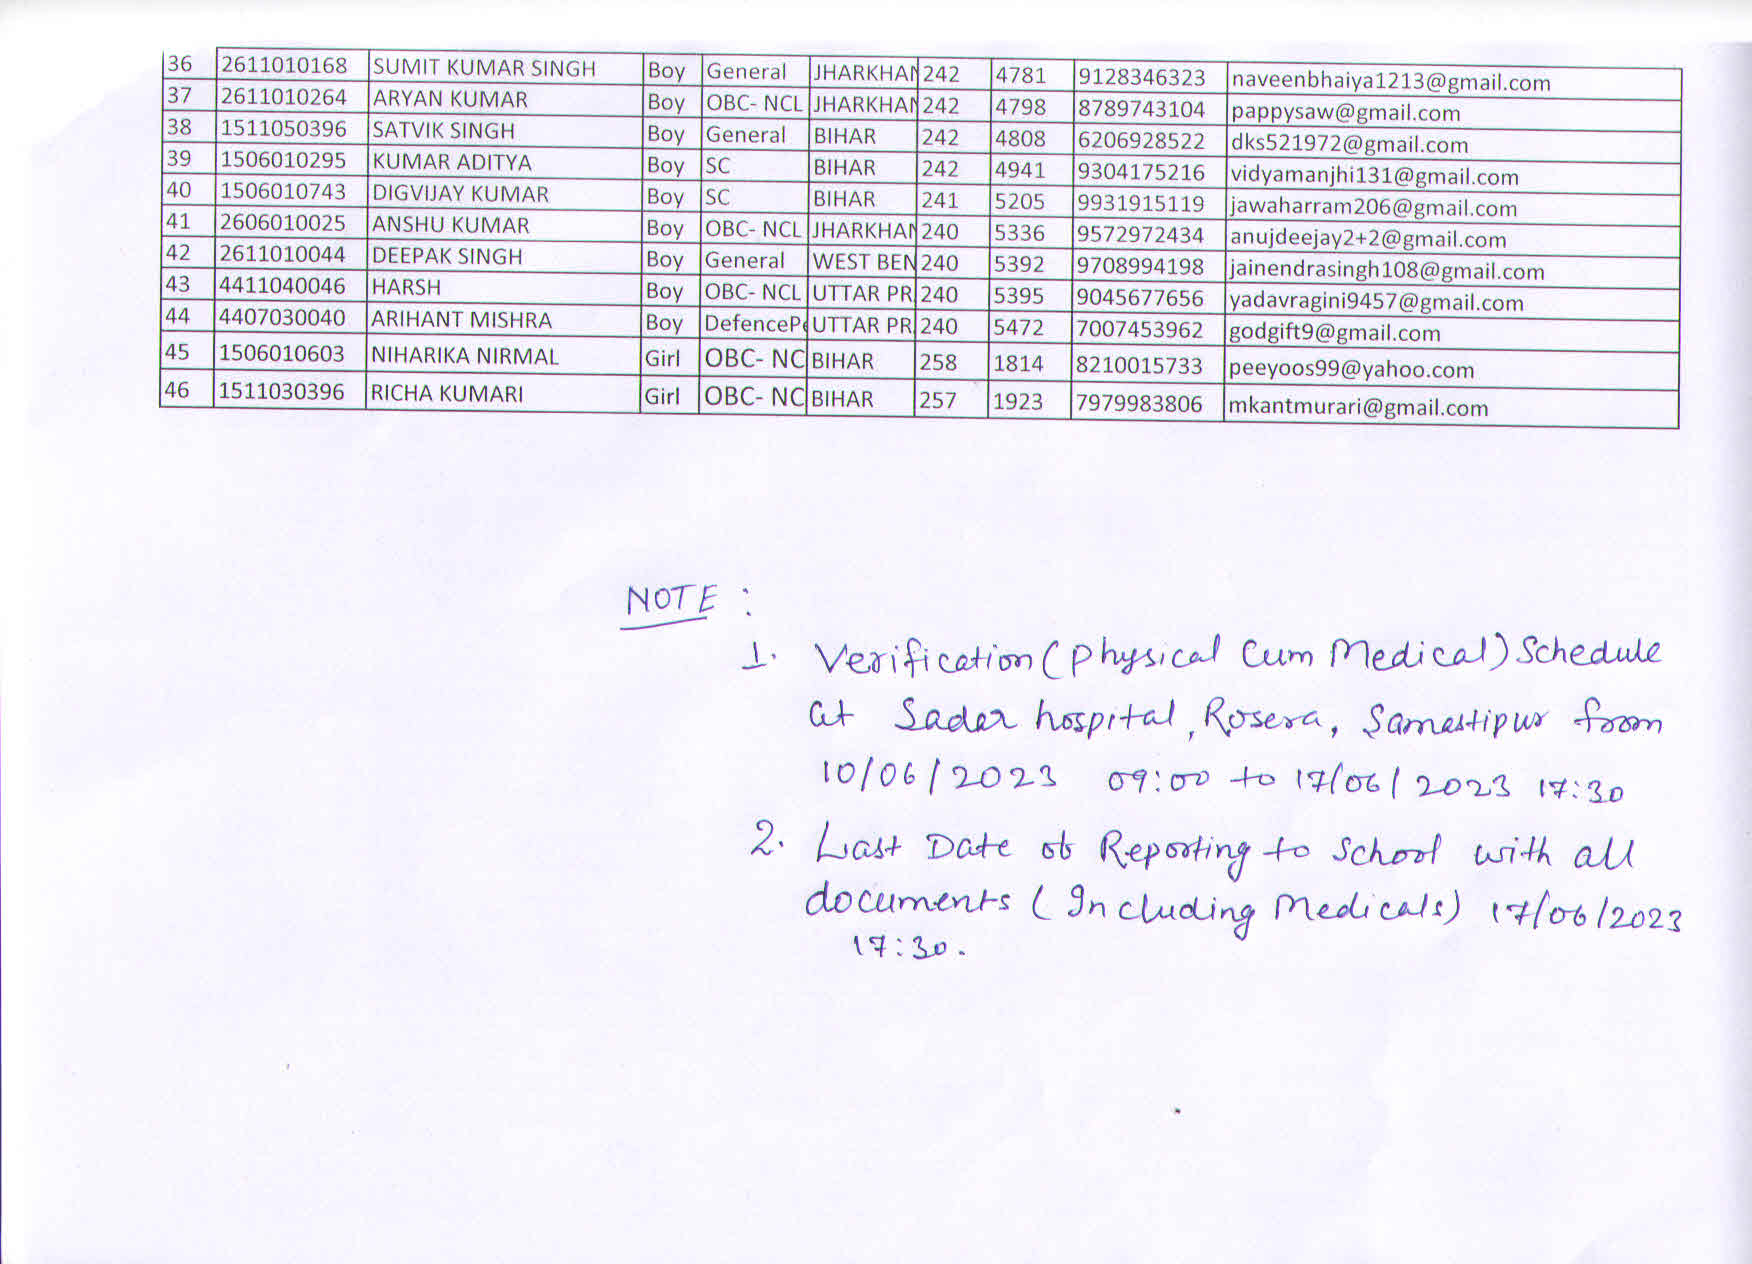 36 2611010168 SUMIT KUMAR SINGH Boy General JHARKHAN 242 4781 9128346323 naveenbhaiya1213@gmail.com
37 2611010264 ARYAN KUMAR Boy OBC- NCL JHARKHAN 242 4798 8789743104 pappysaw@gmail.com
38 1511050396 SATVIK SINGH Boy General BIHAR 242 4808 6206928522 dks521972@gmail.com
39 1506010295 KUMAR ADITYA Boy SC BIHAR 242 4941 9304175216 vidyamanjhi131@gmail.com
40 1506010743 DIGVIJAY KUMAR Boy SC BIHAR 241 5205 9931915119 jawaharram206@gmail.com
41 2606010025 ANSHU KUMAR Boy OBC- NCL JHARKHAN 240 5336 9572972434 anujdeejay2+2@gmail.com
42 2611010044 DEEPAK SINGH Boy General WEST BEN 240 5392 9708994198 jainendrasingh108@gmail.com
43 4411040046 HARSH Boy OBC- NCL UTTAR PR 240 5395 9045677656 yadavragini9457@gmail.com
44 4407030040 ARIHANT MISHRA Boy DefencePe UTTAR PR 240 5472 7007453962 godgift9@gmail.com
45 1506010603 NIHARIKA NIRMAL Girl OBC- NC BIHAR 258 1814 8210015733 peeyoos99@yahoo.com
46 1511030396 RICHA KUMARI Girl OBC- NC BIHAR 257 1923 7979983806 mkantmurari@gmail.com
NOTE :
1. Verification (Physical Cum Medical) Schedule
at Sadar hospital, Rosera, Samastipur from
10/06/2023 09:00 to 17/06/2023 17:30
2. Last Date of Reporting to School with all
documents (Including Medicals) 17/06/2023
17:30.